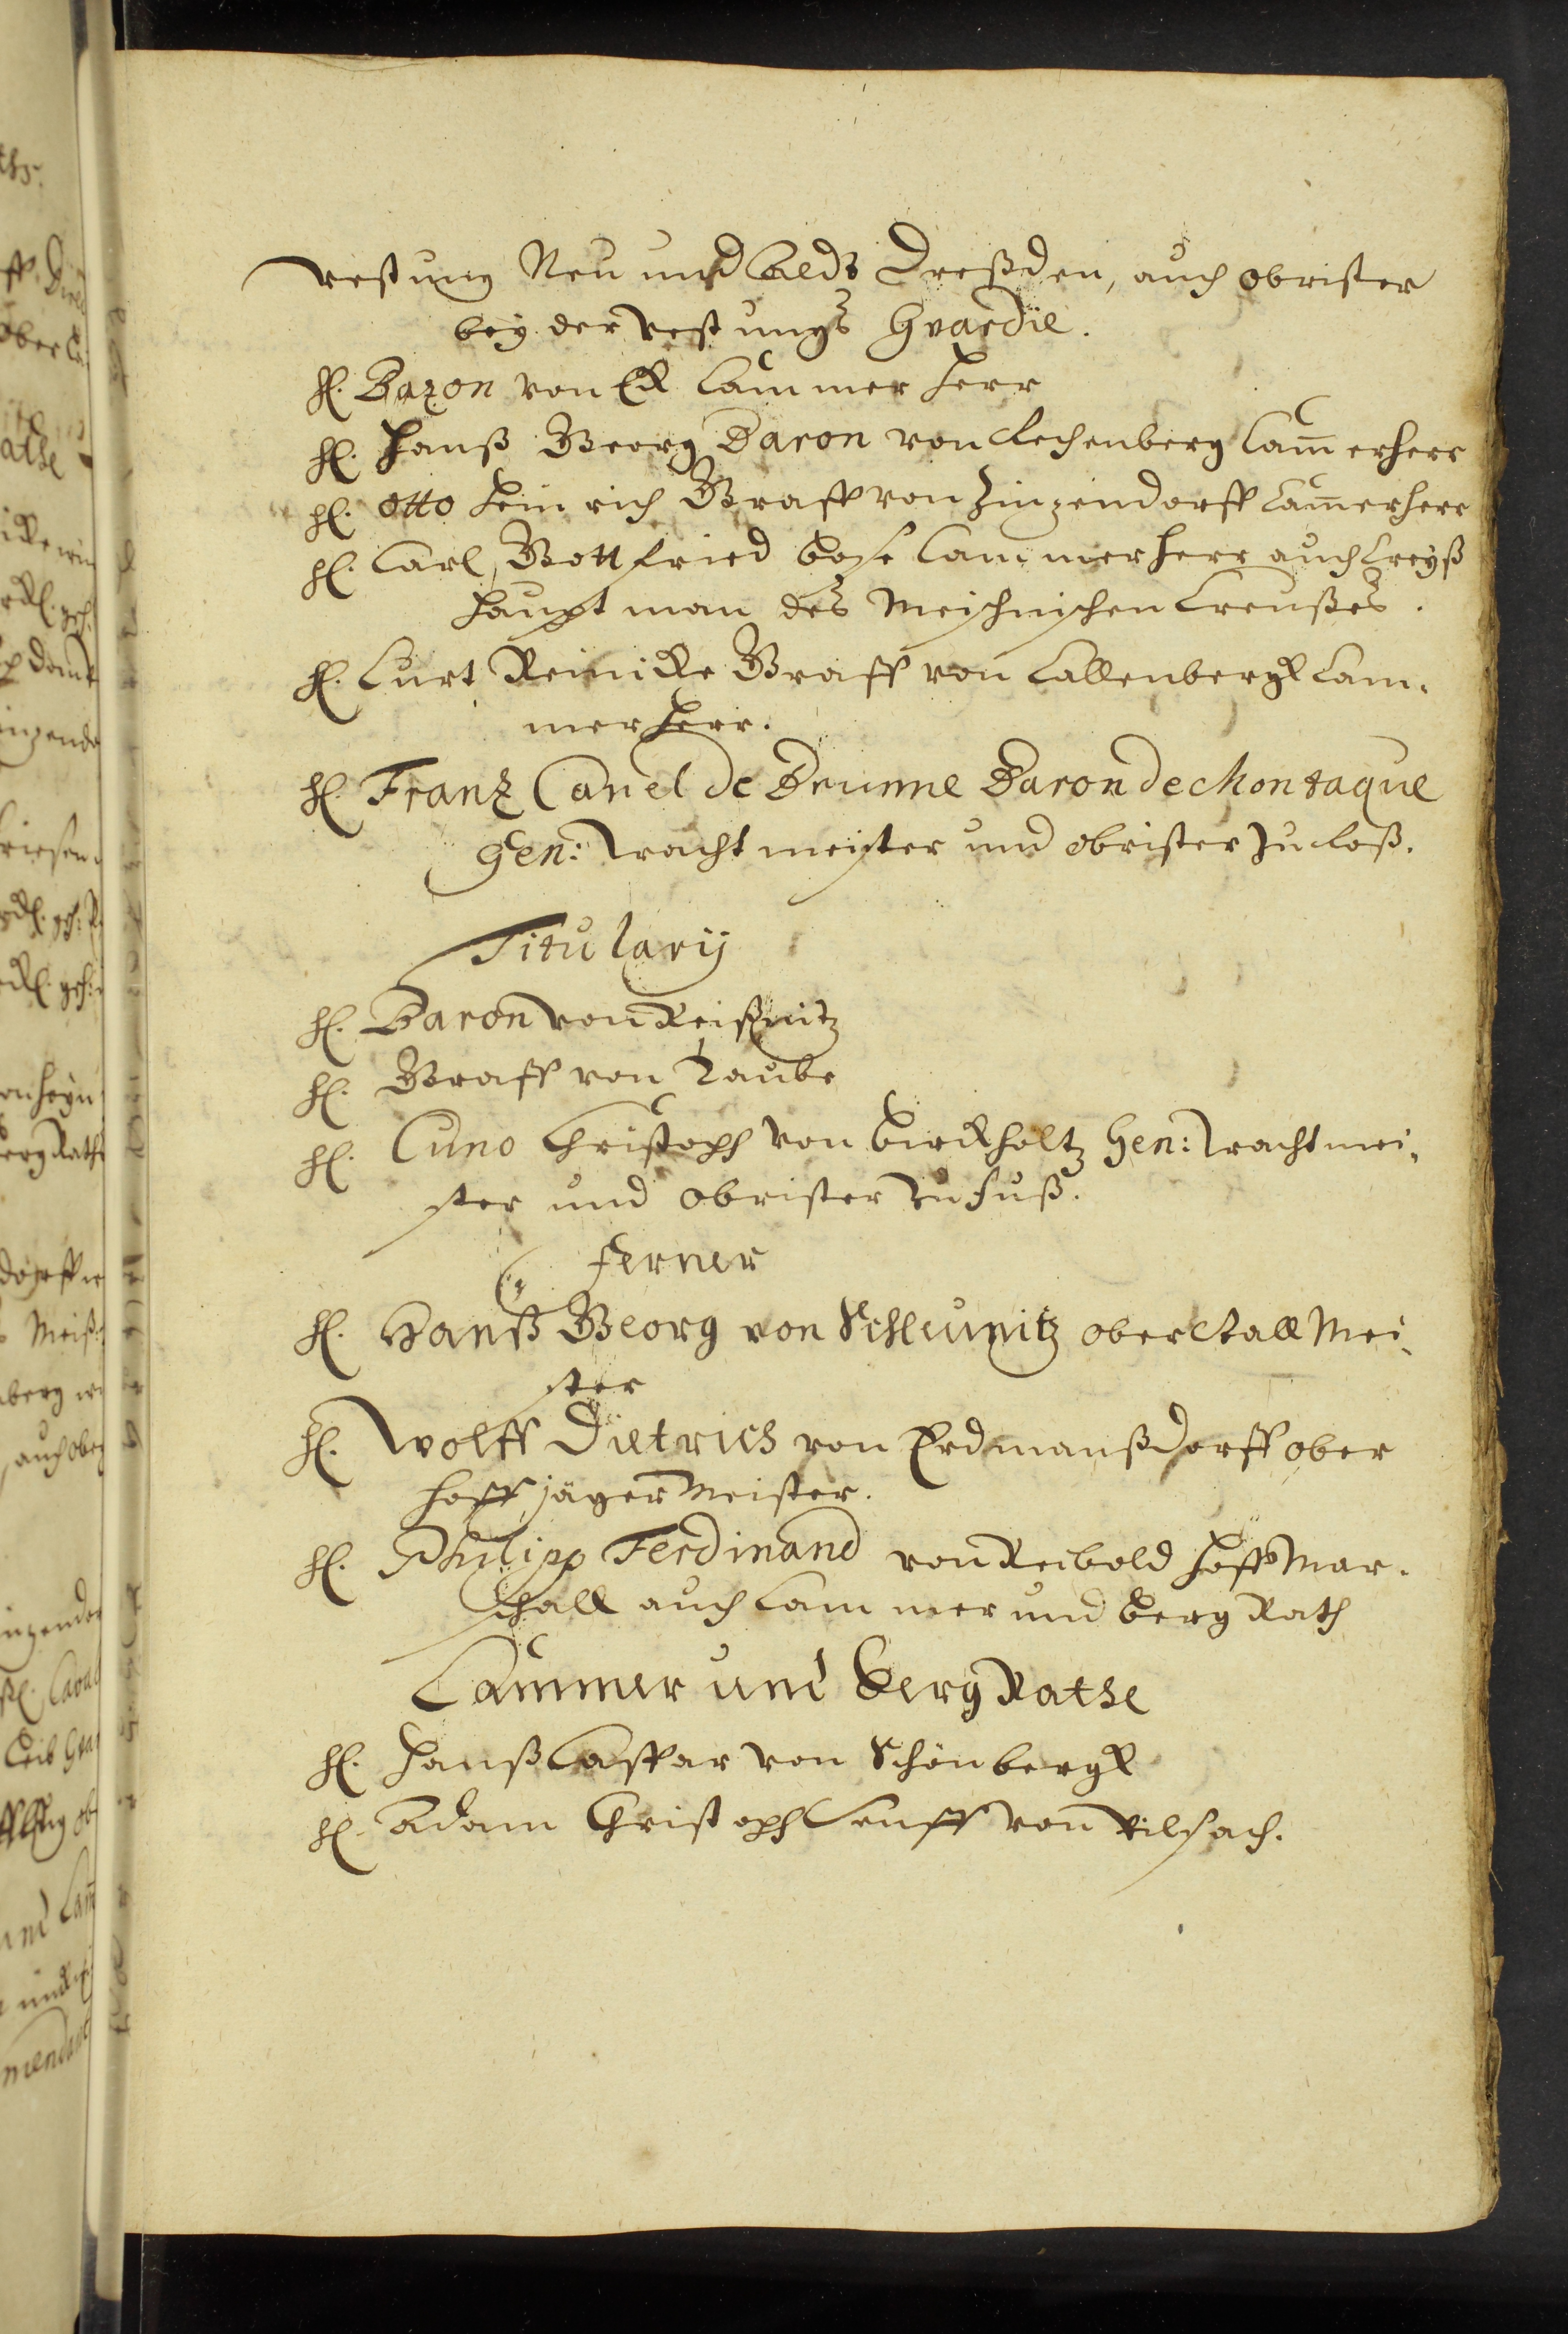 vestung Neu und Aldt Dreßden, auch obrister
bey der vestungs Gvardie.
H. Baron von Eck Cammer Herr
H. Hanß Georg Baron von Rechenberg Cam̅erherr
H. Otto Heinrich Graff von Zinzendorff Cam̅erherr
H. Carl Gottfried Bose Cammerherr auch Creyß
Hauptman des Meischnischen Creußes.
H. Curt Reinicke Graff von Callenbergk Cam-
mer Herr.
H. Franz Carel de Brunne Baron de Montaque
Gen: Wachtmeister und obrister zu Roß.
Titularij
H. Baron von Reißnitz
H. Graff von Taube
H. Cuno Christoph von Birckholtz Gen: Wachtmei-
ster und obrister zu Fuß.
Ferner
H. Hanß Georg von Schleunitz ober Stall Mei-
ster
H. Wolff Dietrich von Erdmanßdorff ober
Hoff Jäger Meister.
H. Philipp Ferdinand von Reibold Hoff Mar-
schall auch Cammer und Berg Rath
Cammer und Berg Rathe
H. Hanß Caspar von Schönbergk
H. Adam Christoph Senff von Pilsach.